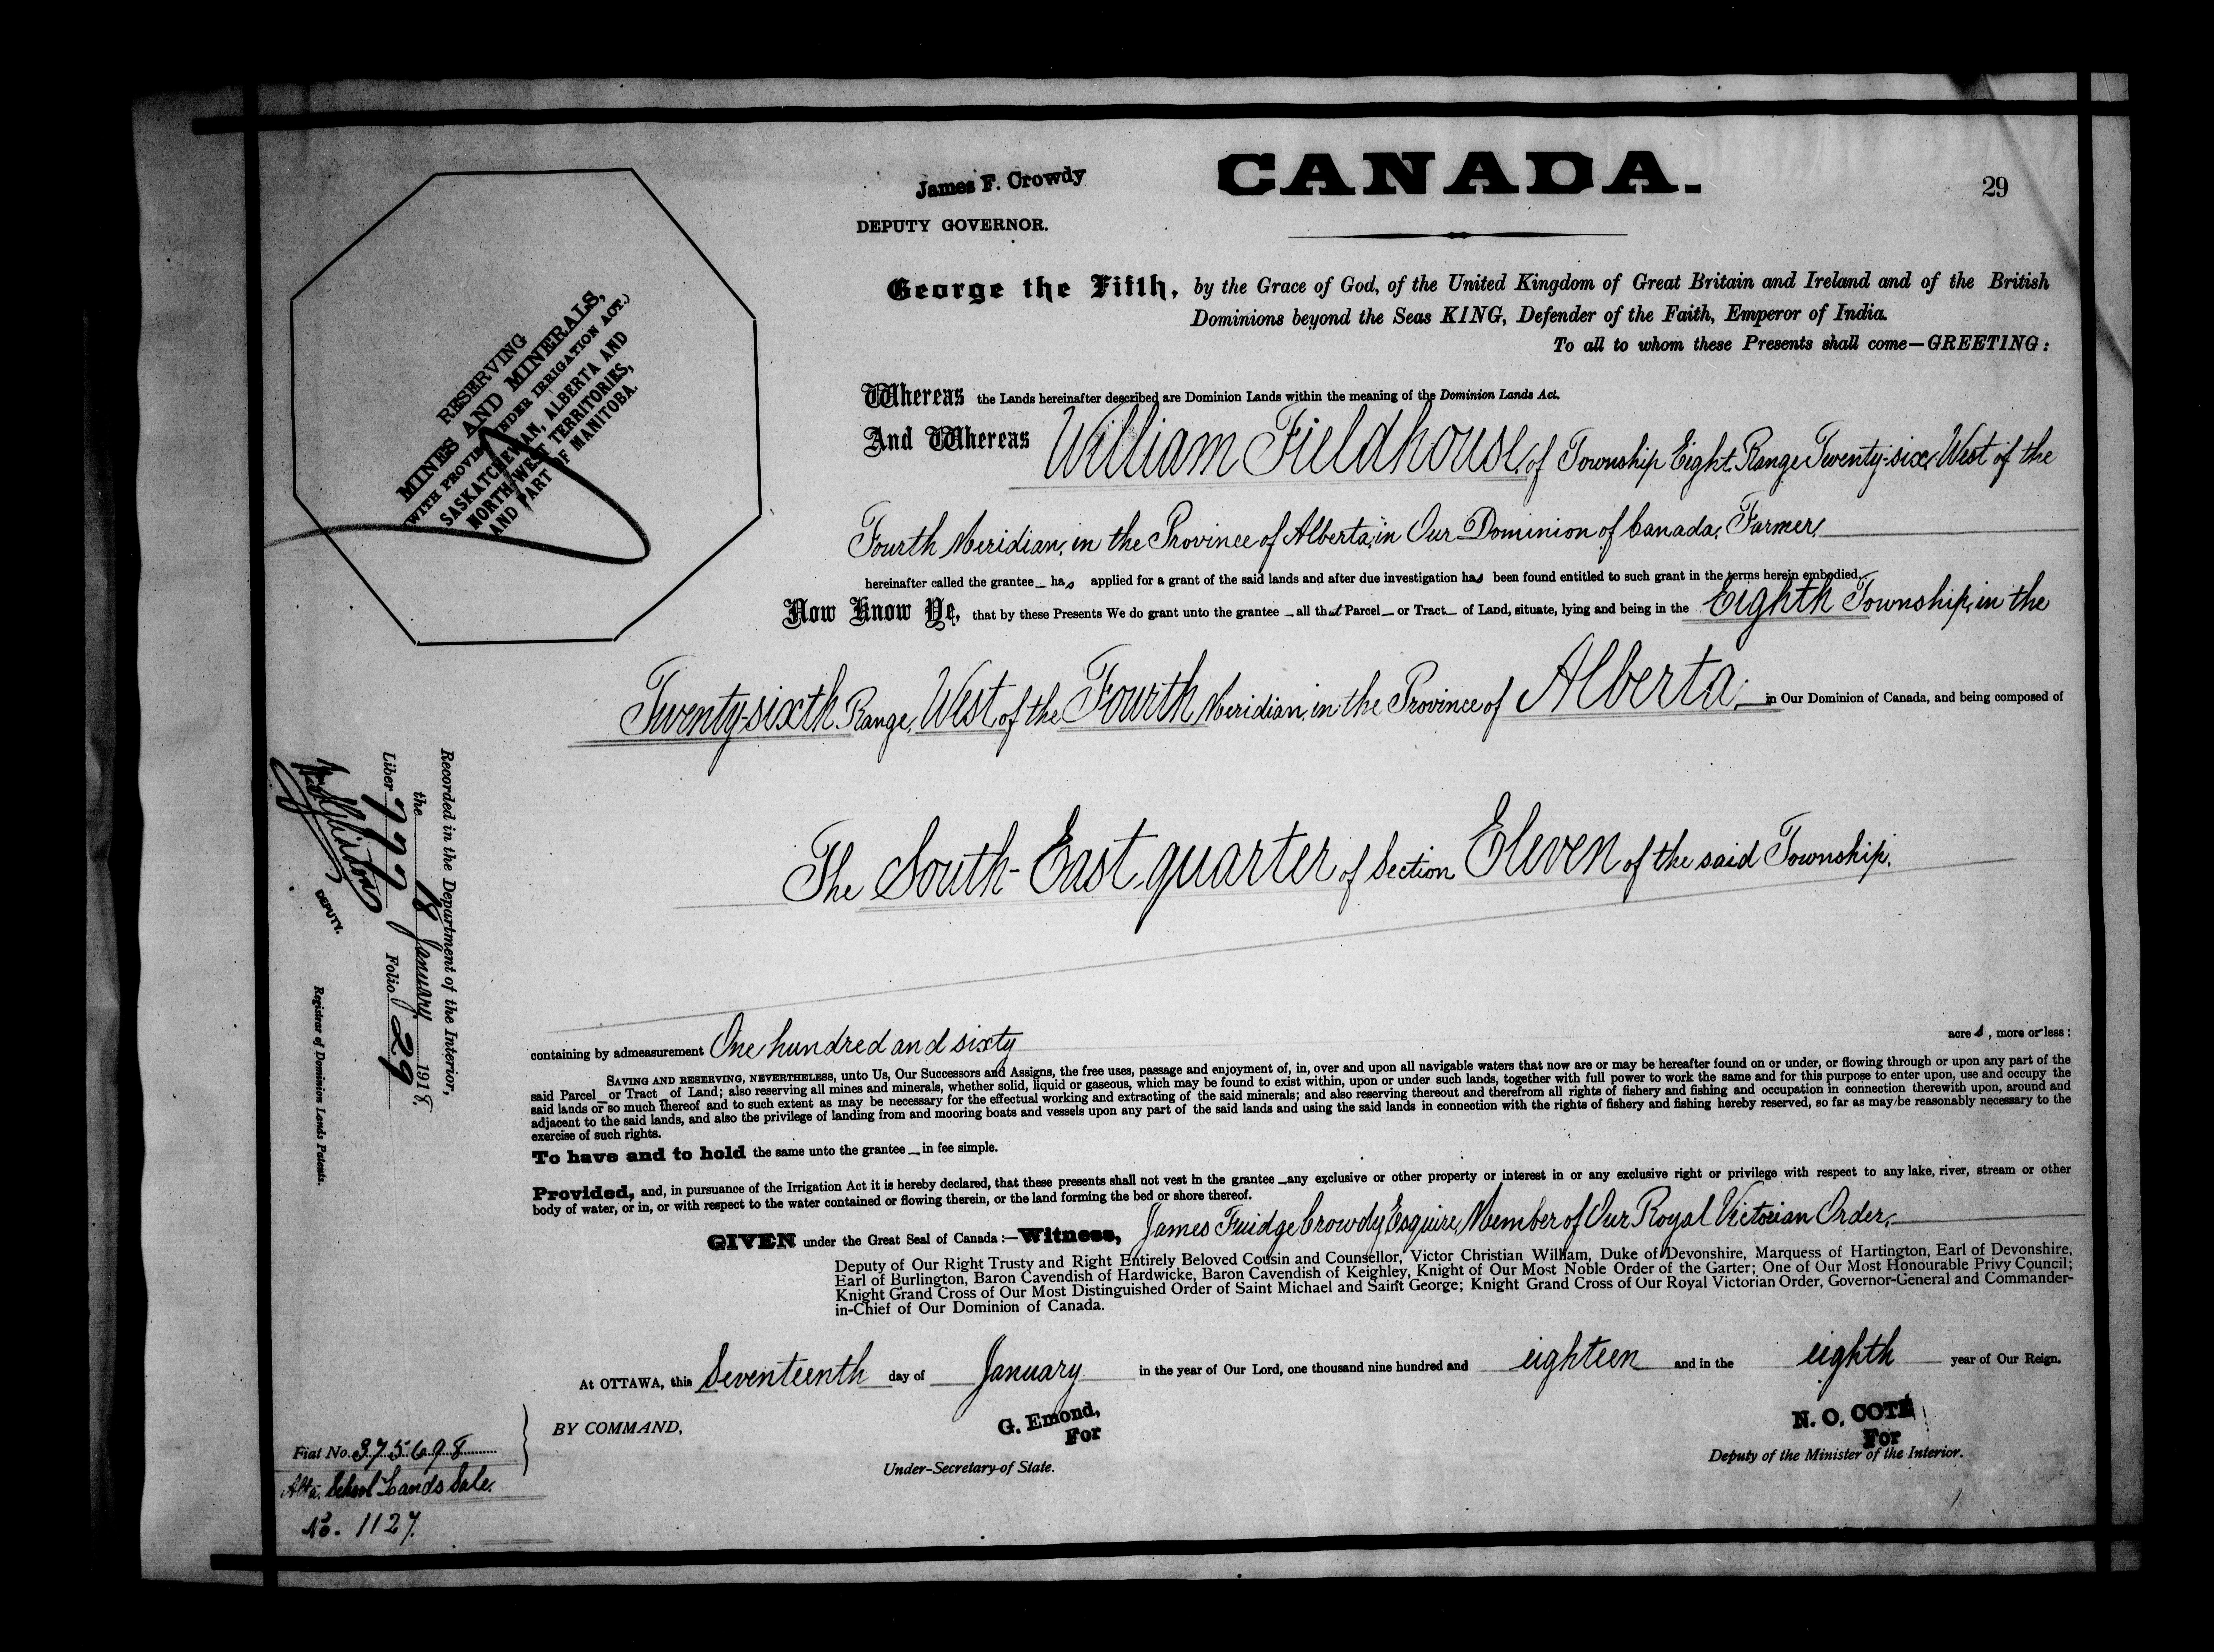 CANADA.
29
James F. Crowdy
DEPUTY GOVERNOR.
George the Fifth, by the Grace of God, of the United Kingdom of Great Britain and Ireland and of the British
Dominions beyond the Seas KING, Defender of the Faith, Emperor of India.
To all to whom these Presents shall come—GREETING:
RESERVING
MINES AND MINERALS,
(WITH PROVISO UNDER IRRIGATION ACT.)
SASKATCHEWAN, ALBERTA AND
NORTH-WEST TERRITORIES,
AND PART OF MANITOBA.
Whereas the Lands hereinafter described are Dominion Lands within the meaning of the Dominion Lands Act.
And Whereas William Fieldhouse, of Township Eight, Range Twenty-six, West of the
Fourth Meridian, in the Province of Alberta, in Our Dominion of Canada, Farmer,
hereinafter called the grantee_ has applied for a grant of the said lands and after due investigation has been found entitled to such grant in the terms herein embodied.
Now Know Ye, that by these Presents We do grant unto the grantee _ all that Parcel_ or Tract_ of Land, situate, lying and being in the Eighth Township, in the
Twenty-sixth Range, West of the Fourth Meridian, in the Province of Alberta, in Our Dominion of Canada, and being composed of
The South-East quarter of Section Eleven of the said Township.
containing by admeasurement One hundred and sixty acre s, more or less:
SAVING AND RESERVING, NEVERTHELESS, unto Us, Our Successors and Assigns, the free uses, passage and enjoyment of, in, over and upon all navigable waters that now are or may be hereafter found on or under, or flowing through or upon any part of the
said Parcel_ or Tract_ of Land; also reserving all mines and minerals, whether solid, liquid or gaseous, which may be found to exist within, upon or under such lands, together with full power to work the same and for this purpose to enter upon, use and occupy the
said lands or so much thereof and to such extent as may be necessary for the effectual working and extracting of the said minerals; and also reserving thereout and therefrom all rights of fishery and fishing and occupation in connection therewith upon, around and
adjacent to the said lands, and also the privilege of landing from and mooring boats and vessels upon any part of the said lands and using the said lands in connection with the rights of fishery and fishing hereby reserved, so far as may be reasonably necessary to the
exercise of such rights.
To have and to hold the same unto the grantee _ in fee simple.
Provided, and, in pursuance of the Irrigation Act it is hereby declared, that these presents shall not vest in the grantee _ any exclusive or other property or interest in or any exclusive right or privilege with respect to any lake, river, stream or other
body of water, or in, or with respect to the water contained or flowing therein, or the land forming the bed or shore thereof.
GIVEN under the Great Seal of Canada:—Witness, James Fuidge Crowdy, Esquire, Member of Our Royal Victorian Order,
Deputy of Our Right Trusty and Right Entirely Beloved Cousin and Counsellor, Victor Christian William, Duke of Devonshire, Marquess of Hartington, Earl of Devonshire,
Earl of Burlington, Baron Cavendish of Hardwicke, Baron Cavendish of Keighley, Knight of Our Most Noble Order of the Garter; One of Our Most Honourable Privy Council;
Knight Grand Cross of Our Most Distinguished Order of Saint Michael and Saint George; Knight Grand Cross of Our Royal Victorian Order, Governor-General and Commander-
in-Chief of Our Dominion of Canada.
At OTTAWA, this Seventeenth day of January in the year of Our Lord, one thousand nine hundred and eighteen and in the eighth year of Our Reign.
BY COMMAND,
G. Emond,
For
Under-Secretary of State.
N. O. COTÉ
For
Deputy of the Minister of the Interior.
Recorded in the Department of the Interior,
the 18 January 1918.
Liber 777 Folio 29
DEPUTY.
Registrar of Dominion Lands Patents.
Fiat No. 375698
Alta. School Lands Sale.
No. 1127.